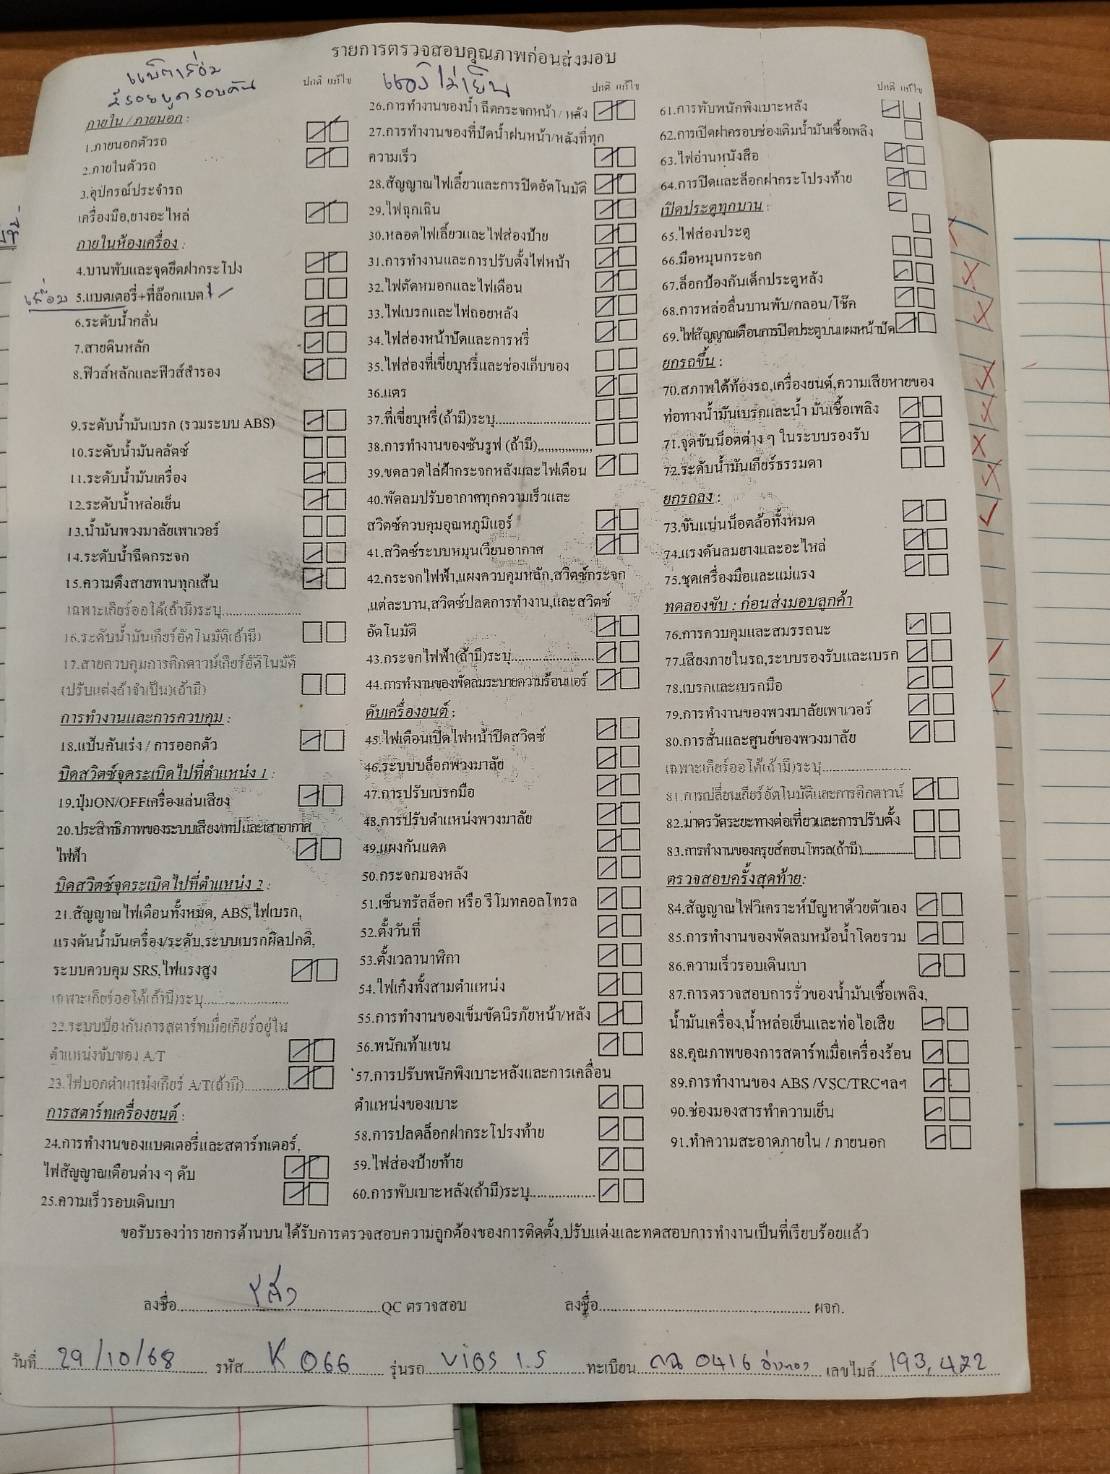 รายการตรวจสอบคุณภาพก่อนส่งมอบ
แบตเสื่อม
มีรอยบุครอบคัน
แอร์ไม่เย็น
ปกติ แก้ไข
ภายใน / ภายนอก :
1.ภายนอกตัวรถ
2.ภายในตัวรถ
3.อุปกรณ์ประจำรถ
เครื่องมือ,ยางอะไหล่
ภายในห้องเครื่อง :
4.บานพับและจุดยึดฝากระโปง
เสื่อม 5.แบตเตอรี่+ที่ล๊อกแบต
6.ระดับน้ำกลั่น
7.สายดินหลัก
8.ฟิวส์หลักและฟิวส์สำรอง
9.ระดับน้ำมันเบรก (รวมระบบ ABS)
10.ระดับน้ำมันคลัตช์
11.ระดับน้ำมันเครื่อง
12.ระดับน้ำหล่อเย็น
13.น้ำมันพวงมาลัยเพาเวอร์
14.ระดับน้ำฉีดกระจก
15.ความตึงสายพานทุกเส้น
เฉพาะเกียร์ออโต้(ถ้ามี)ระบุ
16.ระดับน้ำมันเกียร์อัตโนมัติ(ถ้ามี)
17.สายควบคุมการคิกดาวน์เกียร์อัติโนมัติ
(ปรับแต่งถ้าจำเป็น)(ถ้ามี)
การทำงานและการควบคุม :
18.แป้นคันเร่ง / การออกตัว
บิดสวิตช์จุดระเบิดไปที่ตำแหน่ง 1 :
19.ปุ่มON/OFFเครื่องเล่นเสียง
20.ประสิทธิภาพของระบบเสียง/เทปและเสาอากาศ
ไฟฟ้า
บิดสวิตช์จุดระเบิดไปที่ตำแหน่ง 2 :
21.สัญญาณไฟเตือนทั้งหมด, ABS,ไฟเบรก,
แรงดันน้ำมันเครื่อง/ระดับ,ระบบเบรกผิดปกติ,
ระบบควบคุม SRS,ไฟแรงสูง
เฉพาะเกียร์ออโต้(ถ้ามี)ระบุ
22.ระบบป้องกันการสตาร์ทเมื่อเกียร์อยู่ใน
ตำแหน่งขับของ A/T
23.ไฟบอกตำแหน่งเกียร์ A/T(ถ้ามี)
การสตาร์ทเครื่องยนต์ :
24.การทำงานของแบตเตอรี่และสตาร์ทเตอร์,
ไฟสัญญาณเตือนต่าง ๆ ดับ
25.ความเร็วรอบเดินเบา
ปกติ แก้ไข
26.การทำงานของน้ำ ฉีดกระจกหน้า/ หลัง
27.การทำงานของที่ปัดน้ำฝนหน้า/หลังที่ทุก
ความเร็ว
28.สัญญาณไฟเลี้ยวและการปิดอัตโนมัติ
29.ไฟฉุกเฉิน
30.หลอดไฟเลี้ยวและไฟส่องป้าย
31.การทำงานและการปรับตั้งไฟหน้า
32.ไฟตัดหมอกและไฟเตือน
33.ไฟเบรกและไฟถอยหลัง
34.ไฟส่องหน้าปัดและการหรี่
35.ไฟส่องที่เขี่ยบุหรี่และช่องเก็บของ
36.แตร
37.ที่เขี่ยบุหรี่(ถ้ามี)ระบุ
38.การทำงานของซันรูฟ (ถ้ามี)
39.ขดลวดไล่ฝ้ากระจกหลังและไฟเตือน
40.พัดลมปรับอากาศทุกความเร็วและ
สวิตช์ควบคุมอุณหภูมิแอร์
41.สวิตช์ระบบหมุนเวียนอากาศ
42.กระจกไฟฟ้า,แผงควบคุมหลัก,สวิตช์กระจก
,แต่ละบาน,สวิตช์ปลดการทำงาน,และสวิตช์
อัตโนมัติ
43.กระจกไฟฟ้า(ถ้ามี)ระบุ
44.การทำงานของพัดลมระบายความร้อนแอร์
ดับเครื่องยนต์ :
45.ไฟเตือนเปิดไฟหน้าปิดสวิตช์
46.ระบบบล็อกพวงมาลัย
47.การปรับเบรกมือ
48.การปรับตำแหน่งพวงมาลัย
49.แผงกันแดด
50.กระจกมองหลัง
51.เซ็นทรัลล็อก หรือ รีโมทคอลโทรล
52.ตั้งวันที่
53.ตั้งเวลานาฬิกา
54.ไฟเก๋งทั้งสามตำแหน่ง
55.การทำงานของเข็มขัดนิรภัยหน้า/หลัง
56.พนักเท้าแขน
57.การปรับพนักพิงเบาะหลังและการเคลื่อน
ตำแหน่งของเบาะ
58.การปลดล็อกฝากระโปรงท้าย
59.ไฟส่องป้ายท้าย
60.การพับเบาะหลัง(ถ้ามี)ระบุ
ปกติ แก้ไข
61.การพับพนักพิงเบาะหลัง
62.การเปิดฝาครอบช่องเติมน้ำมันเชื้อเพลิง
63.ไฟอ่านหนังสือ
64.การปิดและล็อกฝากระโปรงท้าย
เปิดประตูทุกบาน :
65.ไฟส่องประตู
66.มือหมุนกระจก
67.ล็อกป้องกันเด็กประตูหลัง
68.การหล่อลื่นบานพับ/กลอน/โช๊ค
69.ไฟสัญญาณเตือนการปิดประตูบนแผงหน้าปัด
ยกรถขึ้น :
70.สภาพใต้ท้องรถ,เครื่องยนต์,ความเสียหายของ
ท่อทางน้ำมันเบรกและน้ำ มันเชื้อเพลิง
71.จุดขันน๊อตต่าง ๆ ในระบบรองรับ
72.ระดับน้ำมันเกียร์ธรรมดา
ยกรถลง :
73.ขันแน่นน๊อตล้อทั้งหมด
74.แรงดันลมยางและอะไหล่
75.ชุดเครื่องมือและแม่แรง
ทดลองขับ : ก่อนส่งมอบลูกค้า
76.การควบคุมและสมรรถนะ
77.เสียงภายในรถ,ระบบรองรับและเบรก
78.เบรกและเบรกมือ
79.การทำงานของพวงมาลัยเพาเวอร์
80.การสั่นและศูนย์ของพวงมาลัย
เฉพาะเกียร์ออโต้(ถ้ามี)ระบุ
81.การเปลี่ยนเกียร์อัตโนมัติและการคิกดาวน์
82.มาตรวัดระยะทางต่อเที่ยวและการปรับตั้ง
83.การทำงานของครุยส์คอนโทรล(ถ้ามี)
ตรวจสอบครั้งสุดท้าย:
84.สัญญาณไฟวิเคราะห์ปัญหาด้วยตัวเอง
85.การทำงานของพัดลมหม้อน้ำโดยรวม
86.ความเร็วรอบเดินเบา
87.การตรวจสอบการรั่วของน้ำมันเชื้อเพลิง,
น้ำมันเครื่อง,น้ำหล่อเย็นและท่อไอเสีย
88.คุณภาพของการสตาร์ทเมื่อเครื่องร้อน
89.การทำงานของ ABS /VSC/TRCฯลฯ
90.ช่องมองสารทำความเย็น
91.ทำความสะอาดภายใน / ภายนอก
ขอรับรองว่ารายการด้านบนได้รับการตรวจสอบความถูกต้องของการติดตั้ง,ปรับแต่งและทดสอบการทำงานเป็นที่เรียบร้อยแล้ว
ลงชื่อ QC ตรวจสอบ ลงชื่อ ผจก.
วันที่ 29/10/68 รหัส K 066 รุ่นรถ vios 1.5 ทะเบียน 0416 อ่างทอง เลขไมล์ 193,472